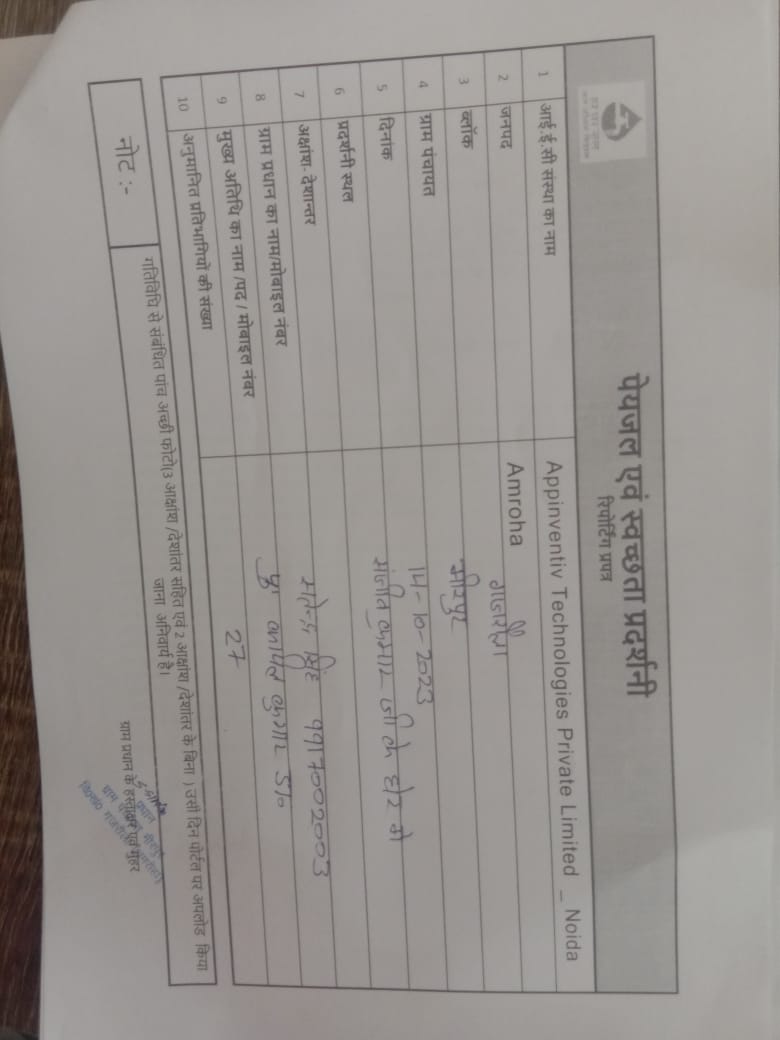 हर घर जल
जल जीवन मिशन
पेयजल एवं स्वच्छता प्रदर्शनी
रिपोर्टिंग प्रपत्र
1 आई.ई.सी संस्था का नाम Appinventiv Technologies Private Limited _ Noida
2 जनपद Amroha
3 ब्लॉक गजरौला
4 ग्राम पंचायत मीरपुर
5 दिनांक 14-10-2023
6 प्रदर्शनी स्थल कुमार जी के घर में
7 अक्षांश- देशान्तर
8 ग्राम प्रधान का नाम/मोबाइल नंबर सिंह 9917002003
9 मुख्य अतिथि का नाम /पद / मोबाइल नंबर कुमार
10 अनुमानित प्रतिभागियों की संख्या 27
नोट :- गतिविधि से संबंधित पांच अच्छी फोटो(3 आक्षांश /देशांतर सहित एवं 2 आक्षांश /देशांतर के बिना ) उसी दिन पोर्टल पर अपलोड किया
जाना अनिवार्य है।
ग्राम प्रधान के हस्ताक्षर एवं मुहर
प्रधान